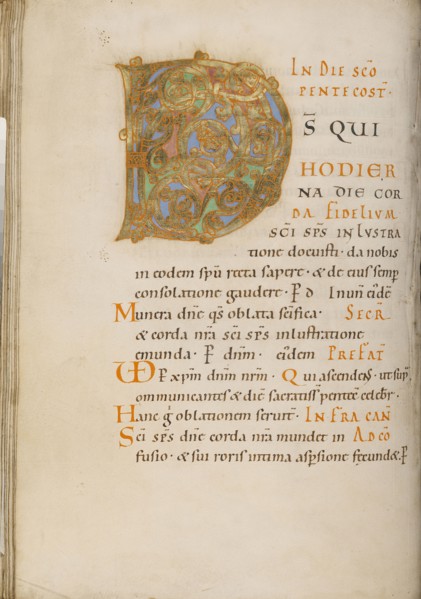 IN DIE SCŌ
PENTECOST̄·
D S̄ QUI
HODIER
NA DIE COR
DA FIDELIUM
SC̄I SP̄S INLVSTRA
tione docuisti · da nobis
in eodem sp̄u recta sapere · & de eius semp̄
consolatione gaudere · P̄ d
Munera dn̄e q̄s oblata sc̄ifica · SECR̄
& corda nr̄a sc̄i sp̄s inlustratione
emunda · P̄ dnm̄ · eiusdem PREFAT̄
P̄ xp̄m dn̄m nr̄m · Qui ascendens · ut sup̄
ommunicantes & die sacratiss̄ pentec̄ celebr̄ ·
Hanc ḡ oblationem seruit̄ · INFRA CAN̄
Sc̄i sp̄s dn̄e corda nr̄a mundet in AD CŌ
fusio · & sui roris intima asp̄sione fecund& · P̄